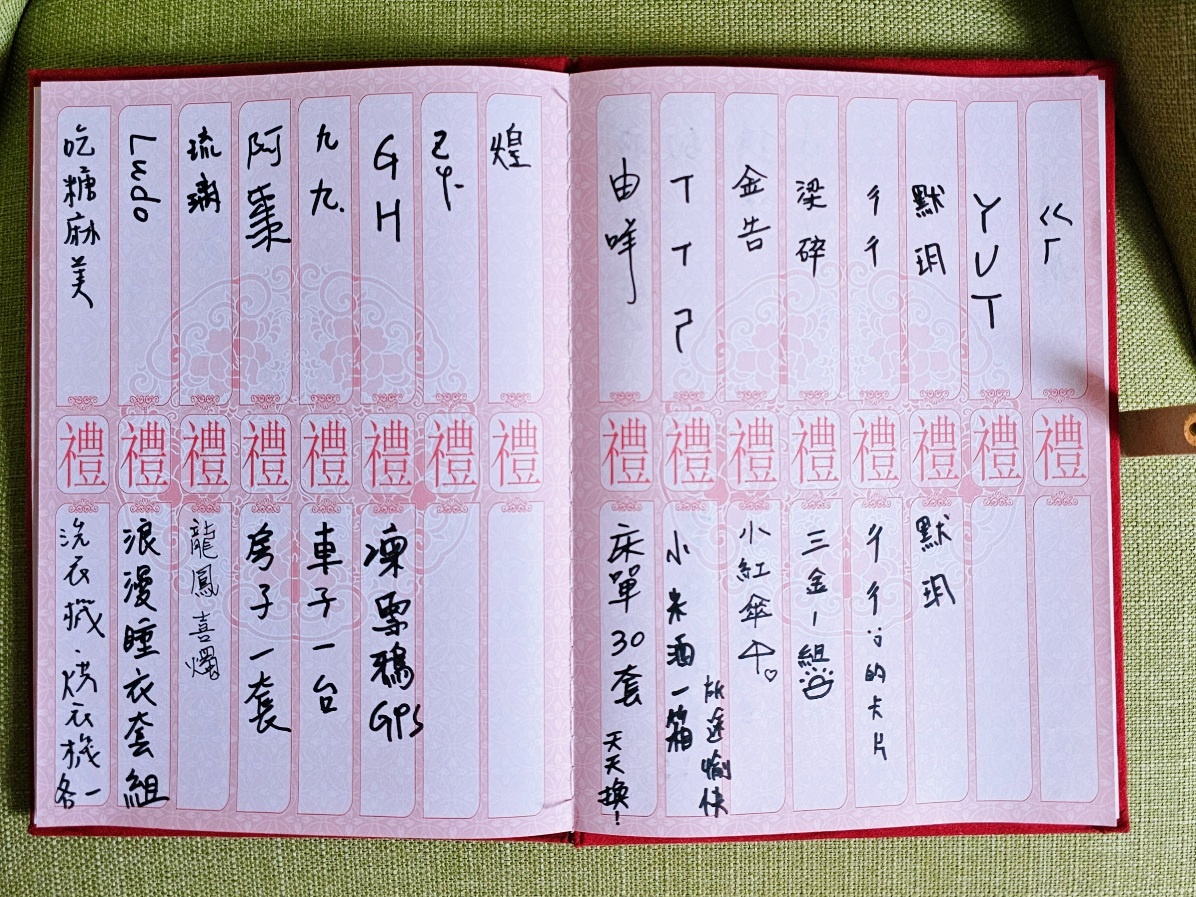 ㄍㄏ
禮
YUT
禮
默玥
禮
默玥
彳彳
禮
彳彳的卡片
梁碎
禮
三金一組
金告
禮
小紅傘
TTㄗ
禮
小米酒一箱
旅途愉快
由咩
禮
床單30套
天天換！
煌
禮
禮
GH
禮
凜雪鴉GPS
九九.
禮
車子一台
阿棗
禮
房子一套
琉璃
禮
龍鳳喜燭
Lmdo
禮
浪漫睡衣套組
吃糖麻美
禮
洗衣機、烘衣機各一